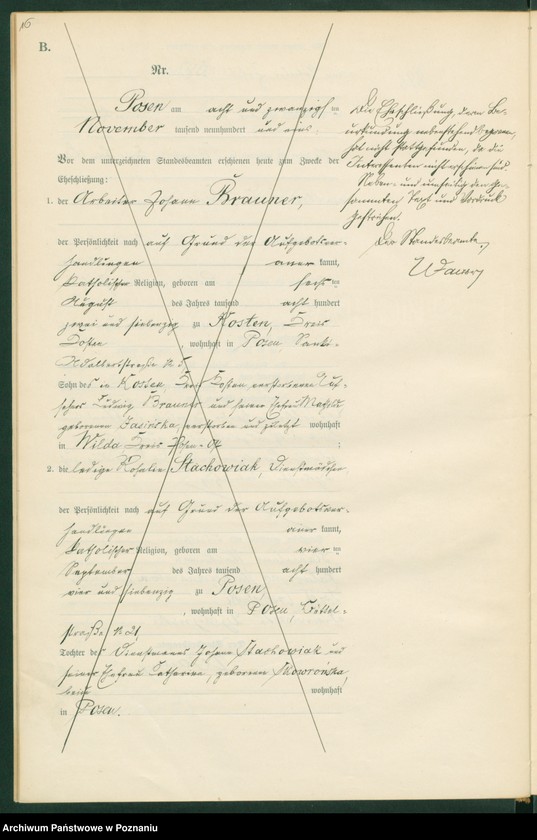 16
B.
Nr.
Posen am acht und zwanzigsten
November tausend neunhundert und eins
Vor dem unterzeichneten Standesbeamten erschienen heute zum Zwecke der
Eheschließung:
1. der Arbeiter Johann Brauner,
der Persönlichkeit nach auf Grund der Aufgebotsver-
handlungen anerkannt,
katholischer Religion, geboren am sechsten
August des Jahres tausend acht hundert
zwei und siebenzig zu Kosten, Kreis
Kosten, wohnhaft in Posen, Sankt-
Adalbertstraße
Sohn des in Kosten, Kreis Kosten, verstorbenen
Ludwig Brauner und seiner Ehefrau
geborenen verstorben und zuletzt wohnhaft
in Wilda Kreis Posen-Ost ;
2. die ledige Rosalie Stachowiak, Dienstmädchen
der Persönlichkeit nach auf Grund der Aufgebotsver-
handlungen anerkannt,
katholischer Religion, geboren am vierten
September des Jahres tausend acht hundert
vier und siebenzig zu Posen,
, wohnhaft in Posen,
straße No 21
Tochter des Dienstmanns Johann Stachowiak und
seiner Ehefrau Catharina, geborenen Skowrońska,
beide wohnhaft
in Posen.
Die Eheschließung, deren Be-
urkundung nebenstehend
hat nicht stattgefunden, da die
Interessenten nicht erschienen sind.
Neben- und den ge-
sammten Text und Vordruck
gestrichen.
Der Standesbeamte,
Archiwum Państwowe w Poznaniu